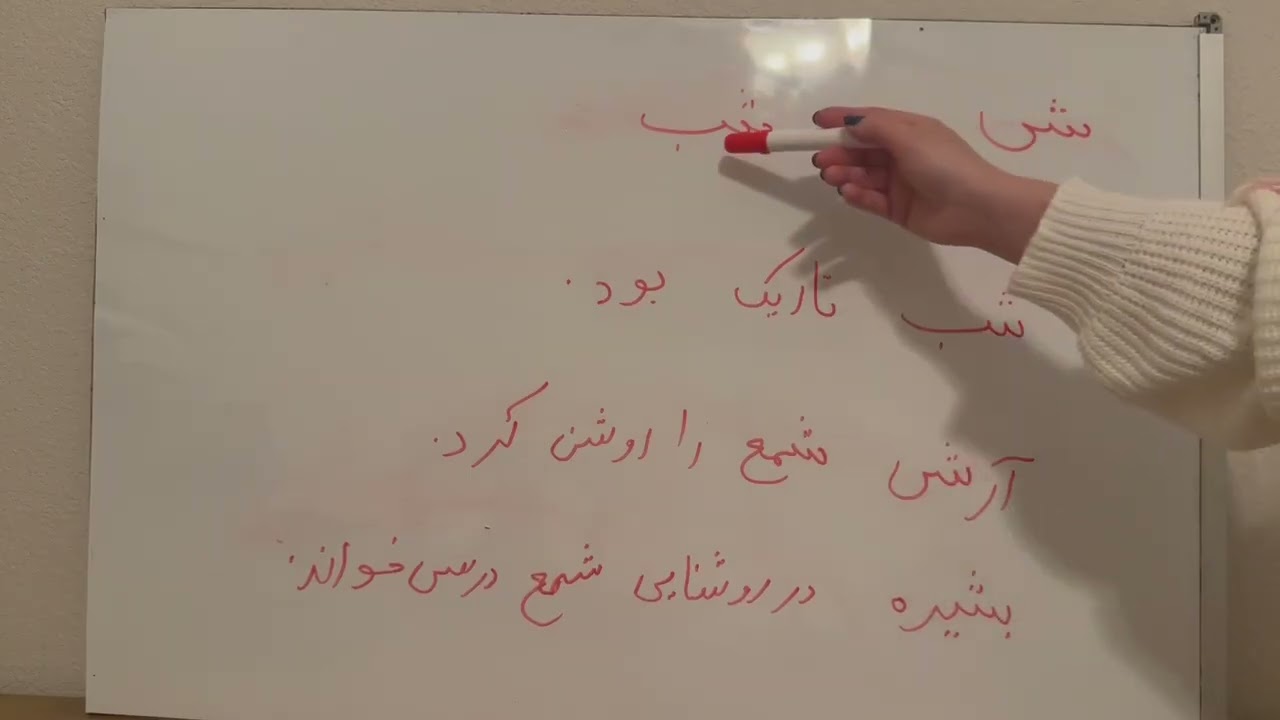 ش شب
شب تاریک بود.
آرش شمع را روشن کرد.
بشیره در روشنایی شمع درس خواند.